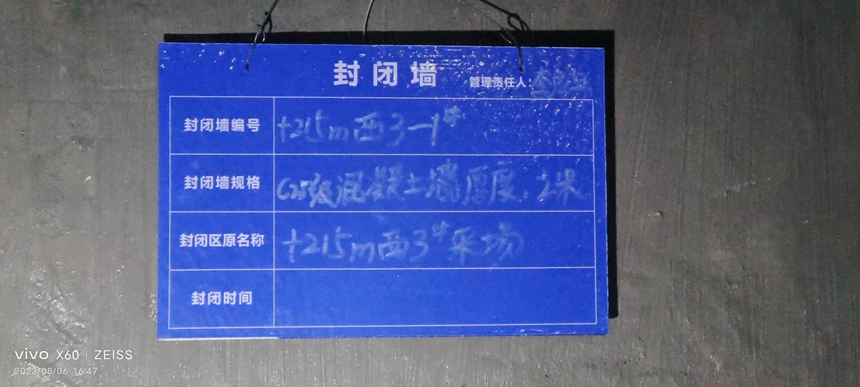 封闭墙
管理责任人:
封闭墙编号 +215m西3-1#
封闭墙规格 C25级混凝土墙厚度,2米
封闭区原名称 +215m西3#采场
封闭时间
vivo X60 | ZEISS
2023/08/06 16:47